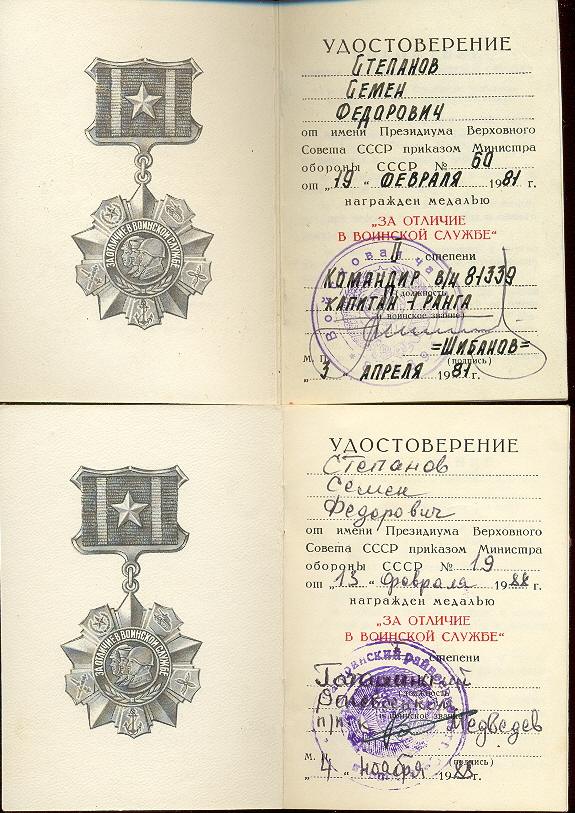 ЗА ОТЛИЧИЕ В ВОИНСКОЙ СЛУЖБЕ
УДОСТОВЕРЕНИЕ
СТЕПАНОВ
СЕМЕН
ФЕДОРОВИЧ
от имени Президиума Верховного
Совета СССР приказом Министра
обороны СССР № 60
от „19“ ФЕВРАЛЯ 1981 г.
награжден медалью
„ЗА ОТЛИЧИЕ
В ВОИНСКОЙ СЛУЖБЕ“
II степени
КОМАНДИР В/Ч 81339
(должность
КАПИТАН 1 РАНГА
и воинское звание)
=ШИБАНОВ=
М. П. (подпись)
„3“ АПРЕЛЯ 1981 г.
ЗА ОТЛИЧИЕ В ВОИНСКОЙ СЛУЖБЕ
УДОСТОВЕРЕНИЕ
Степанов
Семен
Федорович
от имени Президиума Верховного
Совета СССР приказом Министра
обороны СССР № 19
от „13“ февраля 1988 г.
награжден медалью
„ЗА ОТЛИЧИЕ
В ВОИНСКОЙ СЛУЖБЕ“
I степени
(должность
и воинское звание)
п/п-к Медведев
М. (подпись)
„4“ ноября 1988 г.